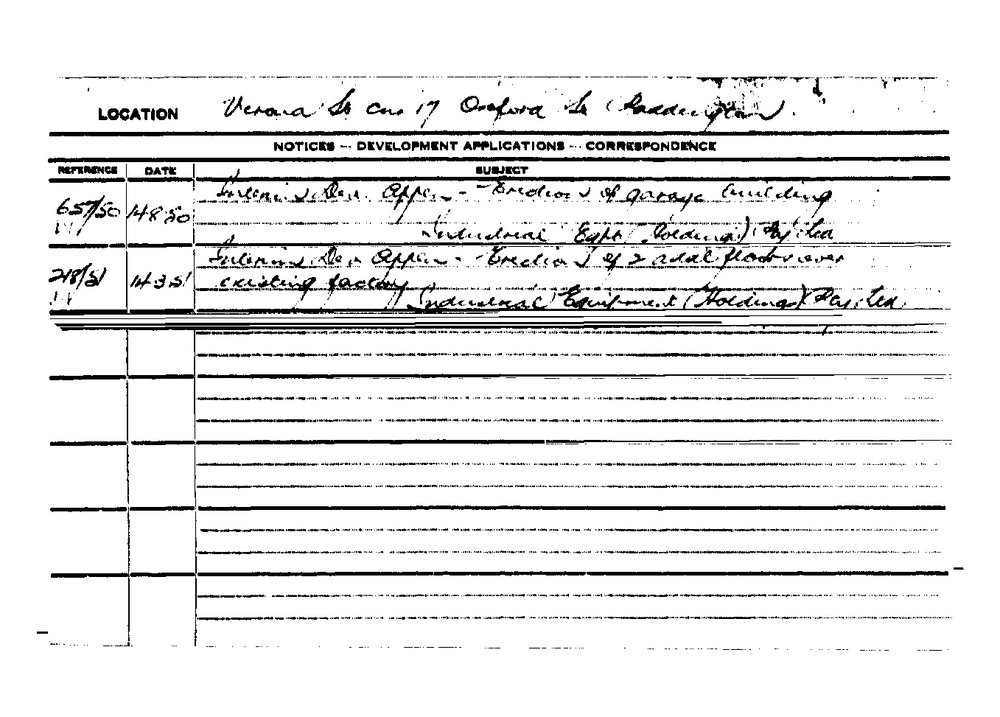 LOCATION Verona St cnr 17 Oxford St (Paddington).
NOTICES -- DEVELOPMENT APPLICATIONS -- CORRESPONDENCE
REFERENCE DATE SUBJECT
Interim Dev. Appln - Erection of garage building
657/50 14 8 50
Industrial Eqpt (Holdings) Pty Ltd
Interim Dev Appln - Erection of 2 addl floors over
218/51 14 3 51 existing factory
Industrial Equipment (Holdings) Pty. Ltd